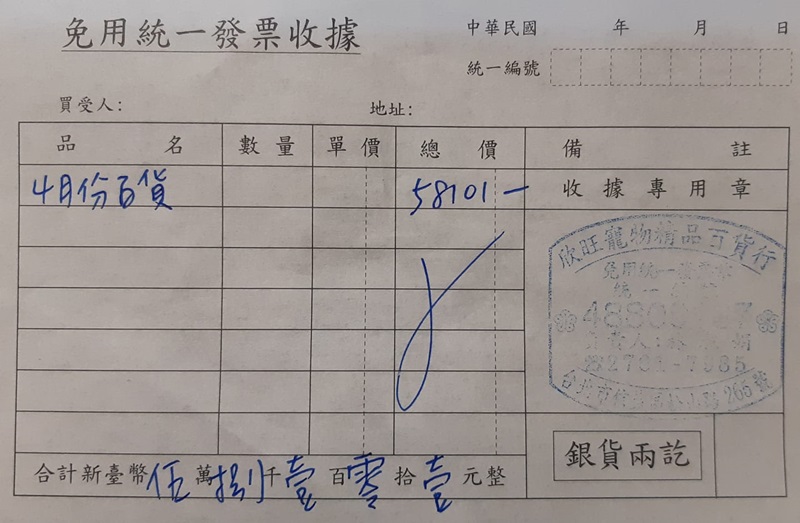 免用統一發票收據
中華民國 年 月 日
統一編號
買受人: 地址:
品名 數量 單價 總價 備註
4月份百貨 58101- 收據專用章
欣旺寵物精品百貨行
免用統一發票
統一
48809 7
負責人:
☎2761-7985
台北市 265號
銀貨兩訖
合計新臺幣伍萬捌千壹百零拾壹元整